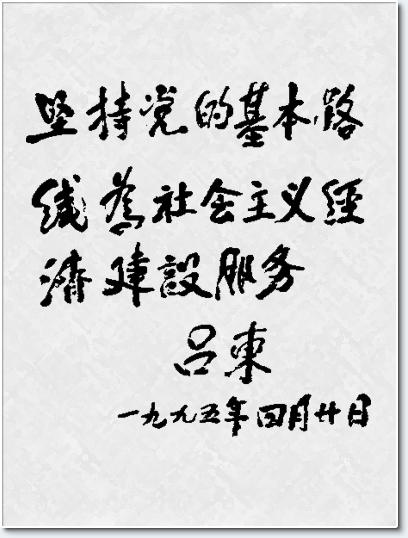 坚持党的基本路
线為社会主义經
濟建設服务
吕東
一九九五年四月廿日